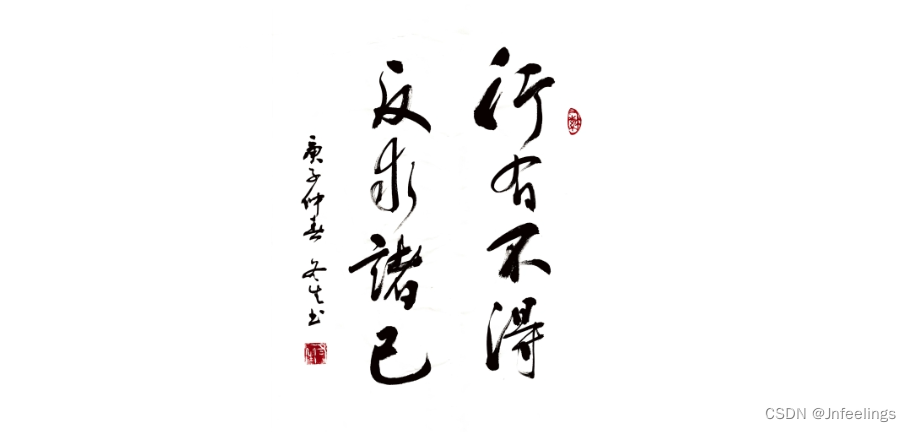 行有不得
反求諸己
庚子仲春 冬生书
CSDN @Jnfeelings